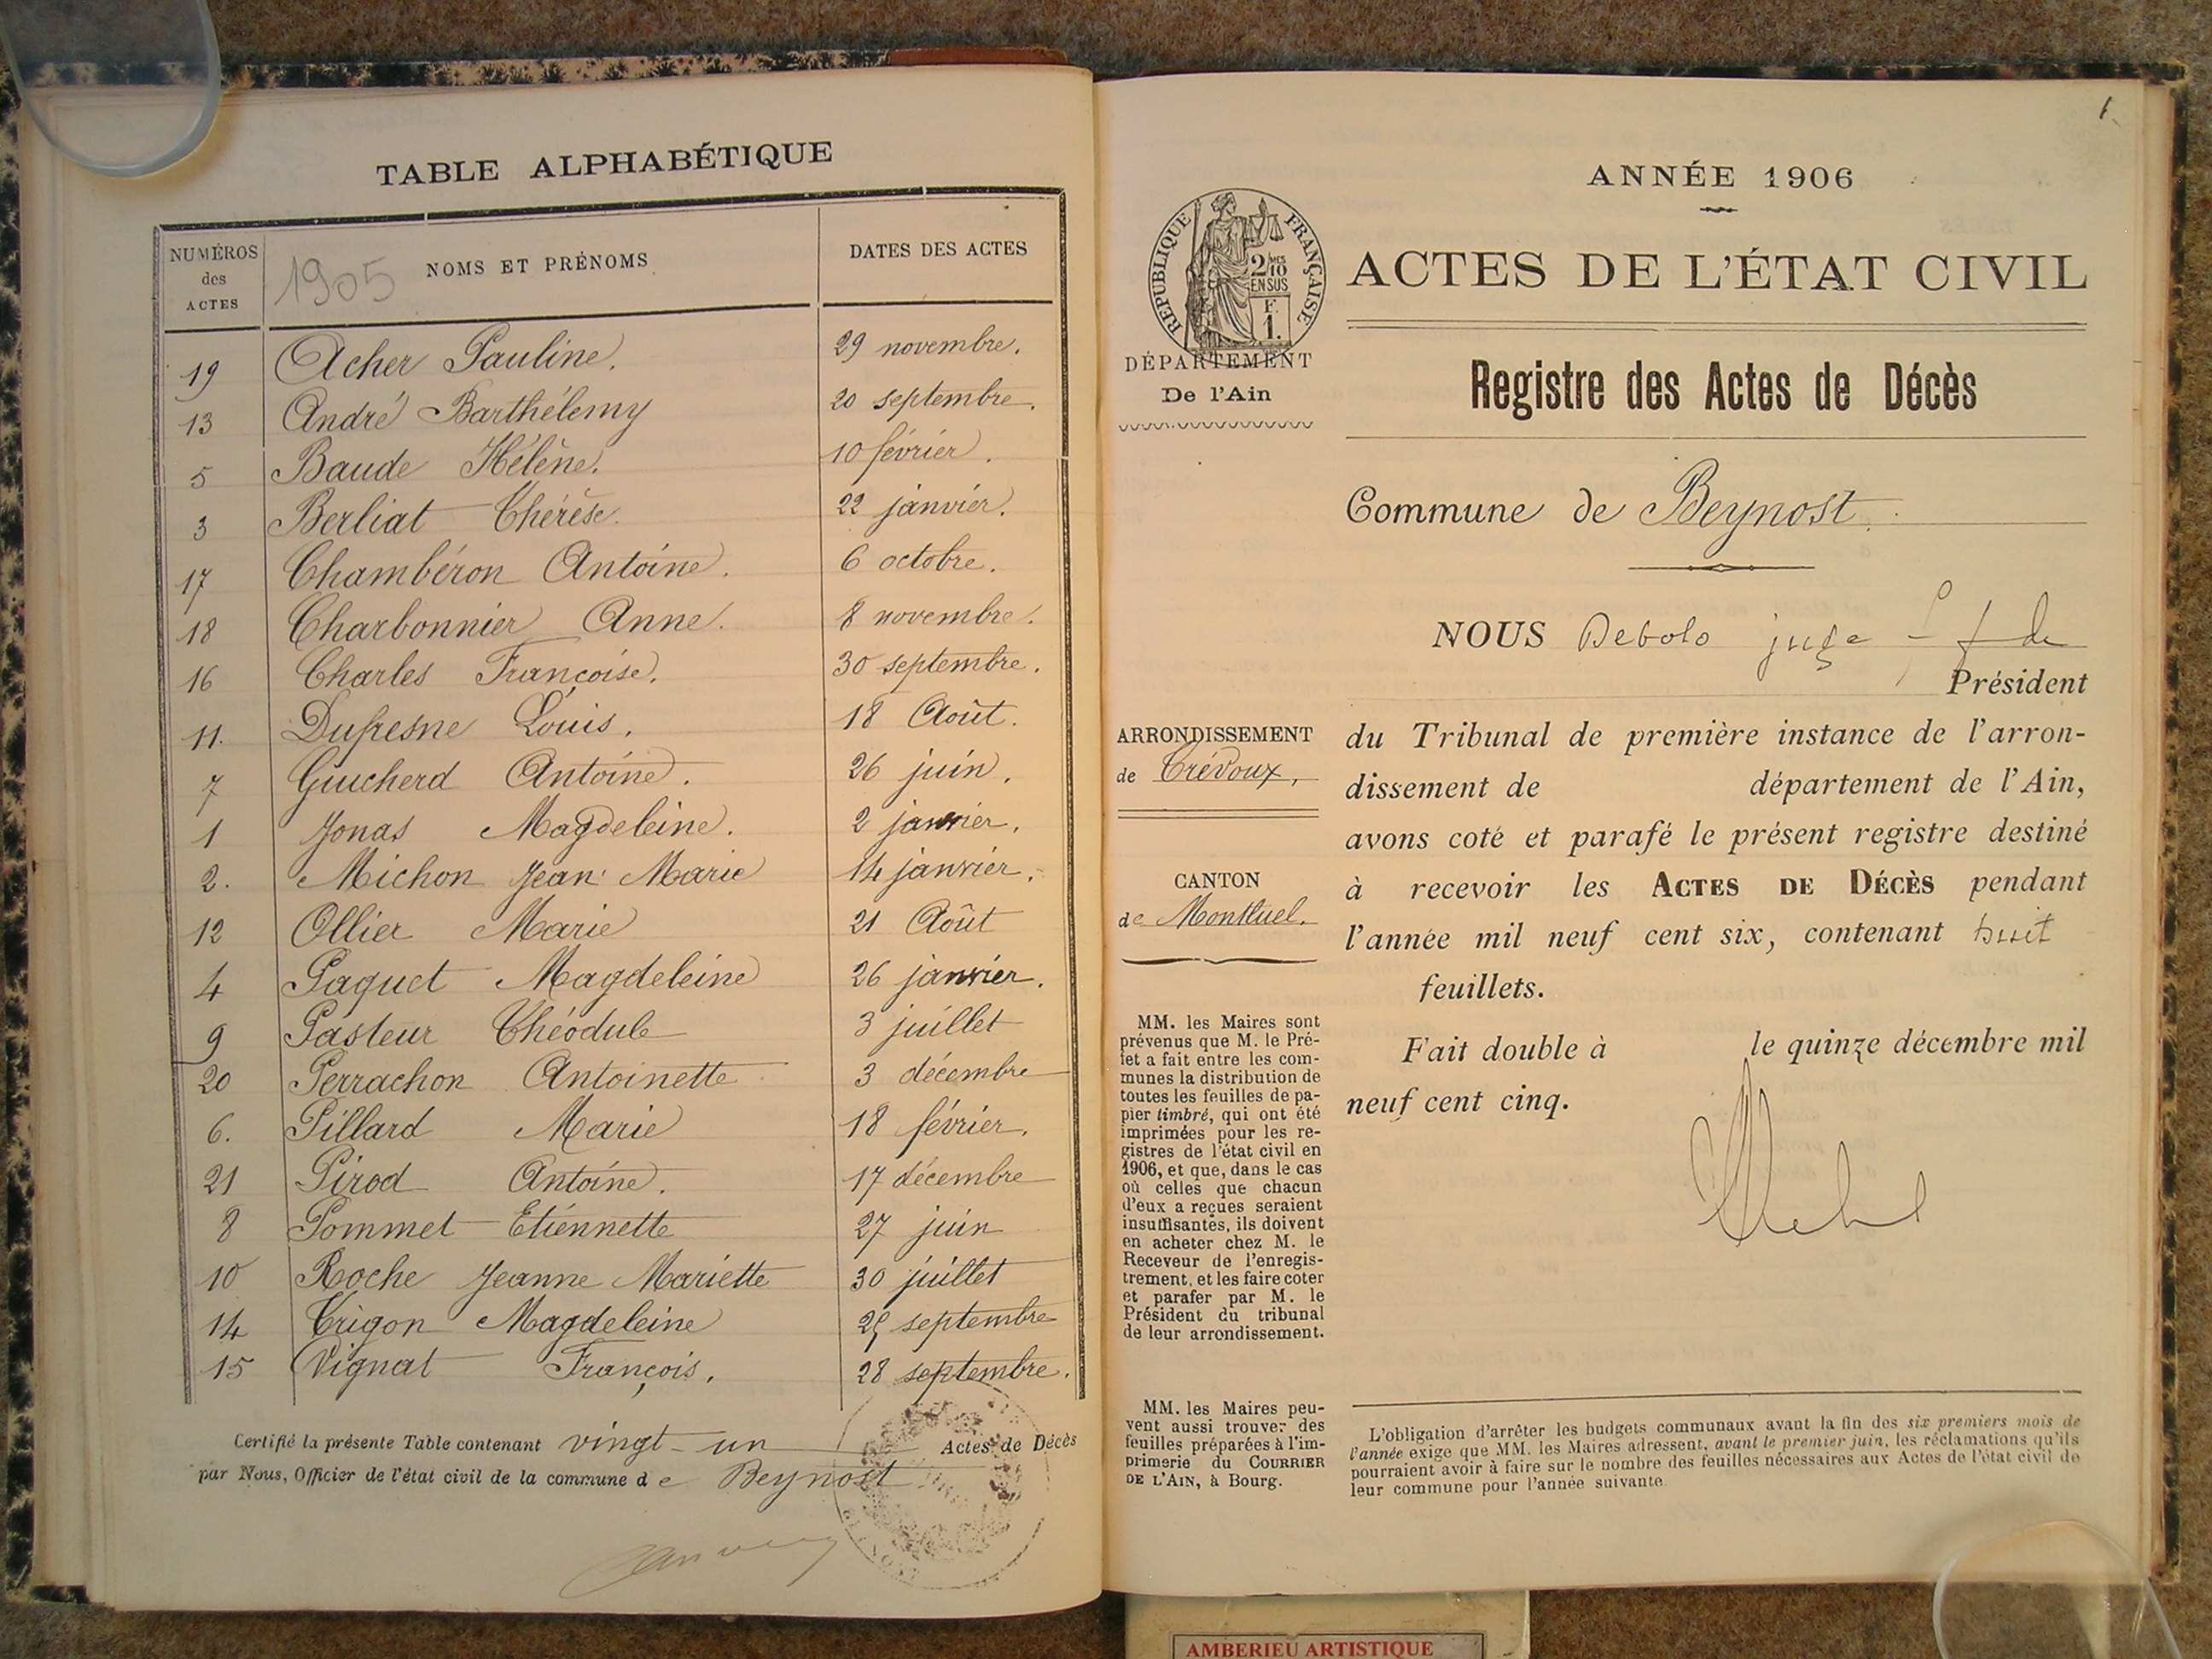 TABLE ALPHABÉTIQUE
NUMÉROS des ACTES
1905 NOMS ET PRÉNOMS
DATES DES ACTES
19 Acher Pauline. 29 novembre.
13 André Barthélemy 20 septembre.
5 Baude Hélène. 10 février.
3 Berliat Thérèse. 22 janvier.
17 Chambéron Antoine. 6 octobre.
18 Charbonnier Anne. 8 novembre.
16 Charles Françoise. 30 septembre.
11. Dufresne Louis. 18 Août.
7 Guicherd Antoine. 26 juin.
1 Jonas Magdeleine. 2 janvier.
2. Michon Jean Marie 14 janvier.
12 Ollier Marie 21 Août
4 Paquet Magdeleine 26 janvier.
9 Pasteur Théodule 3 juillet
20 Perrachon Antoinette 3 décembre
6. Pillard Marie 18 février.
21 Pirod Antoine. 17 décembre
8 Pommet Etiennette 27 juin
10 Roche Jeanne Mariette 30 juillet
14 Trigon Magdeleine 25 septembre
15 Vignat François. 28 septembre.
Certifié la présente Table contenant vingt-un Actes de Décès
par Nous, Officier de l'état civil de la commune de Beynost
1
RÉPUBLIQUE FRANÇAISE
2/10 EN SUS
F. 1.
DÉPARTEMENT
De l'Ain
ARRONDISSEMENT
de Trévoux,
CANTON
de Montluel.
MM. les Maires sont
prévenus que M. le Pré-
fet a fait entre les com-
munes la distribution de
toutes les feuilles de pa-
pier timbré, qui ont été
imprimées pour les re-
gistres de l'état civil en
1906, et que, dans le cas
où celles que chacun
d'eux a reçues seraient
insuffisantes, ils doivent
en acheter chez M. le
Receveur de l'enregis-
trement, et les faire coter
et parafer par M. le
Président du tribunal
de leur arrondissement.
MM. les Maires peu-
vent aussi trouver des
feuilles préparées à l'im-
primerie du COURRIER
DE L'AIN, à Bourg.
ANNÉE 1906
ACTES DE L'ÉTAT CIVIL
Registre des Actes de Décès
Commune de Beynost.
NOUS Debolo juge
Président
du Tribunal de première instance de l'arron-
dissement de département de l'Ain,
avons coté et parafé le présent registre destiné
à recevoir les ACTES DE DÉCÈS pendant
l'année mil neuf cent six, contenant huit
feuillets.
Fait double à le quinze décembre mil
neuf cent cinq.
L'obligation d'arrêter les budgets communaux avant la fin des six premiers mois de
l'année exige que MM. les Maires adressent, avant le premier juin, les réclamations qu'ils
pourraient avoir à faire sur le nombre des feuilles nécessaires aux Actes de l'état civil de
leur commune pour l'année suivante.
AMBERIEU ARTISTIQUE